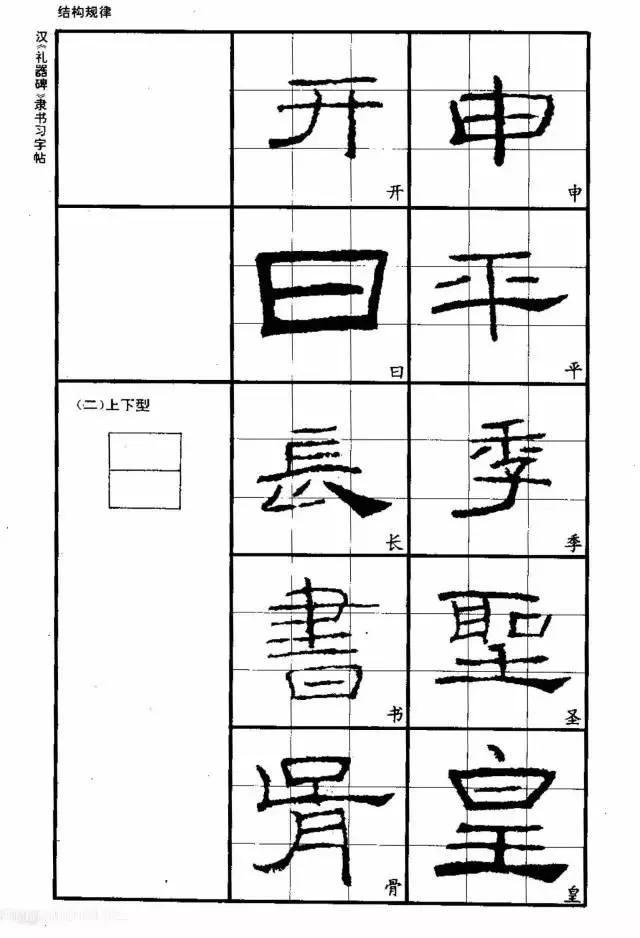 结构规律
汉《礼器碑》隶书习字帖
开 开 申 申
曰 曰 平 平
(二)上下型
長 长 季 季
書 书 聖 圣
骨 骨 皇 皇